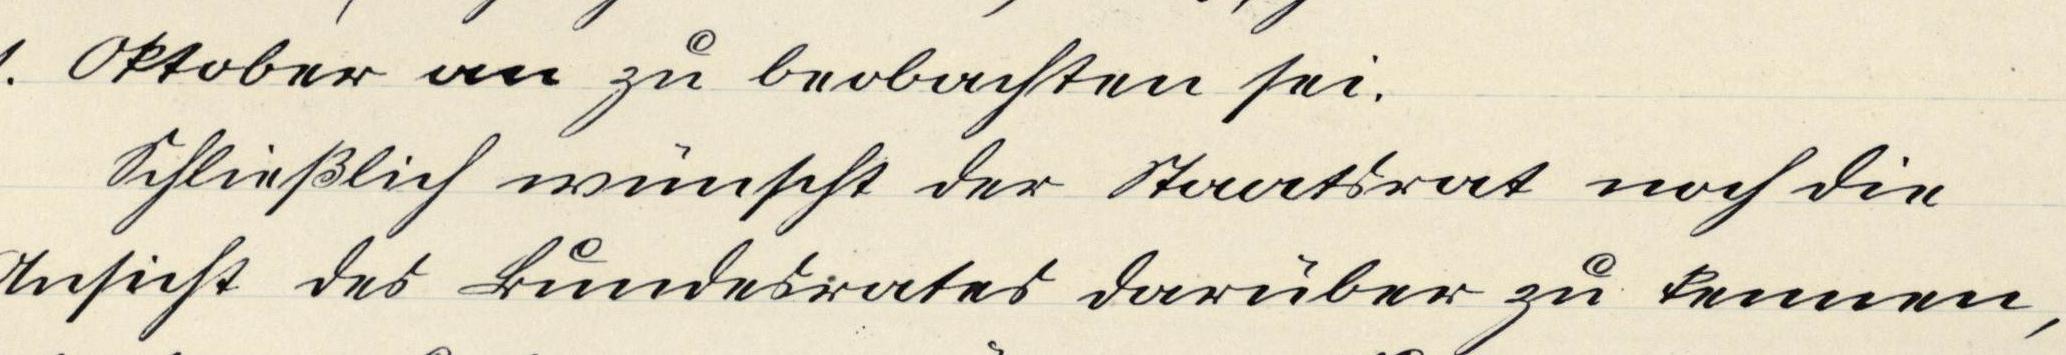 1. Oktober an zu beobachten sei.
Schließlich wünscht der Staatsrat noch die
Ansicht des Bundesrates darüber zu kennen,